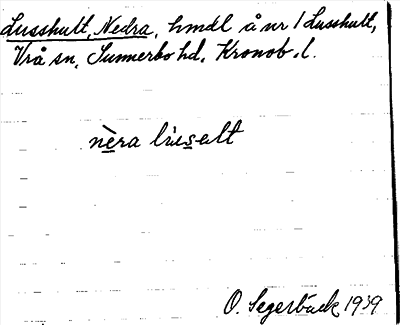 Lusshult, Nedra, hmdl å nr 1 Lusshult,
Vrå sn, Sunnerbo hd, Kronob. l.
nèra lùsalt
O. Segerbäck 1939